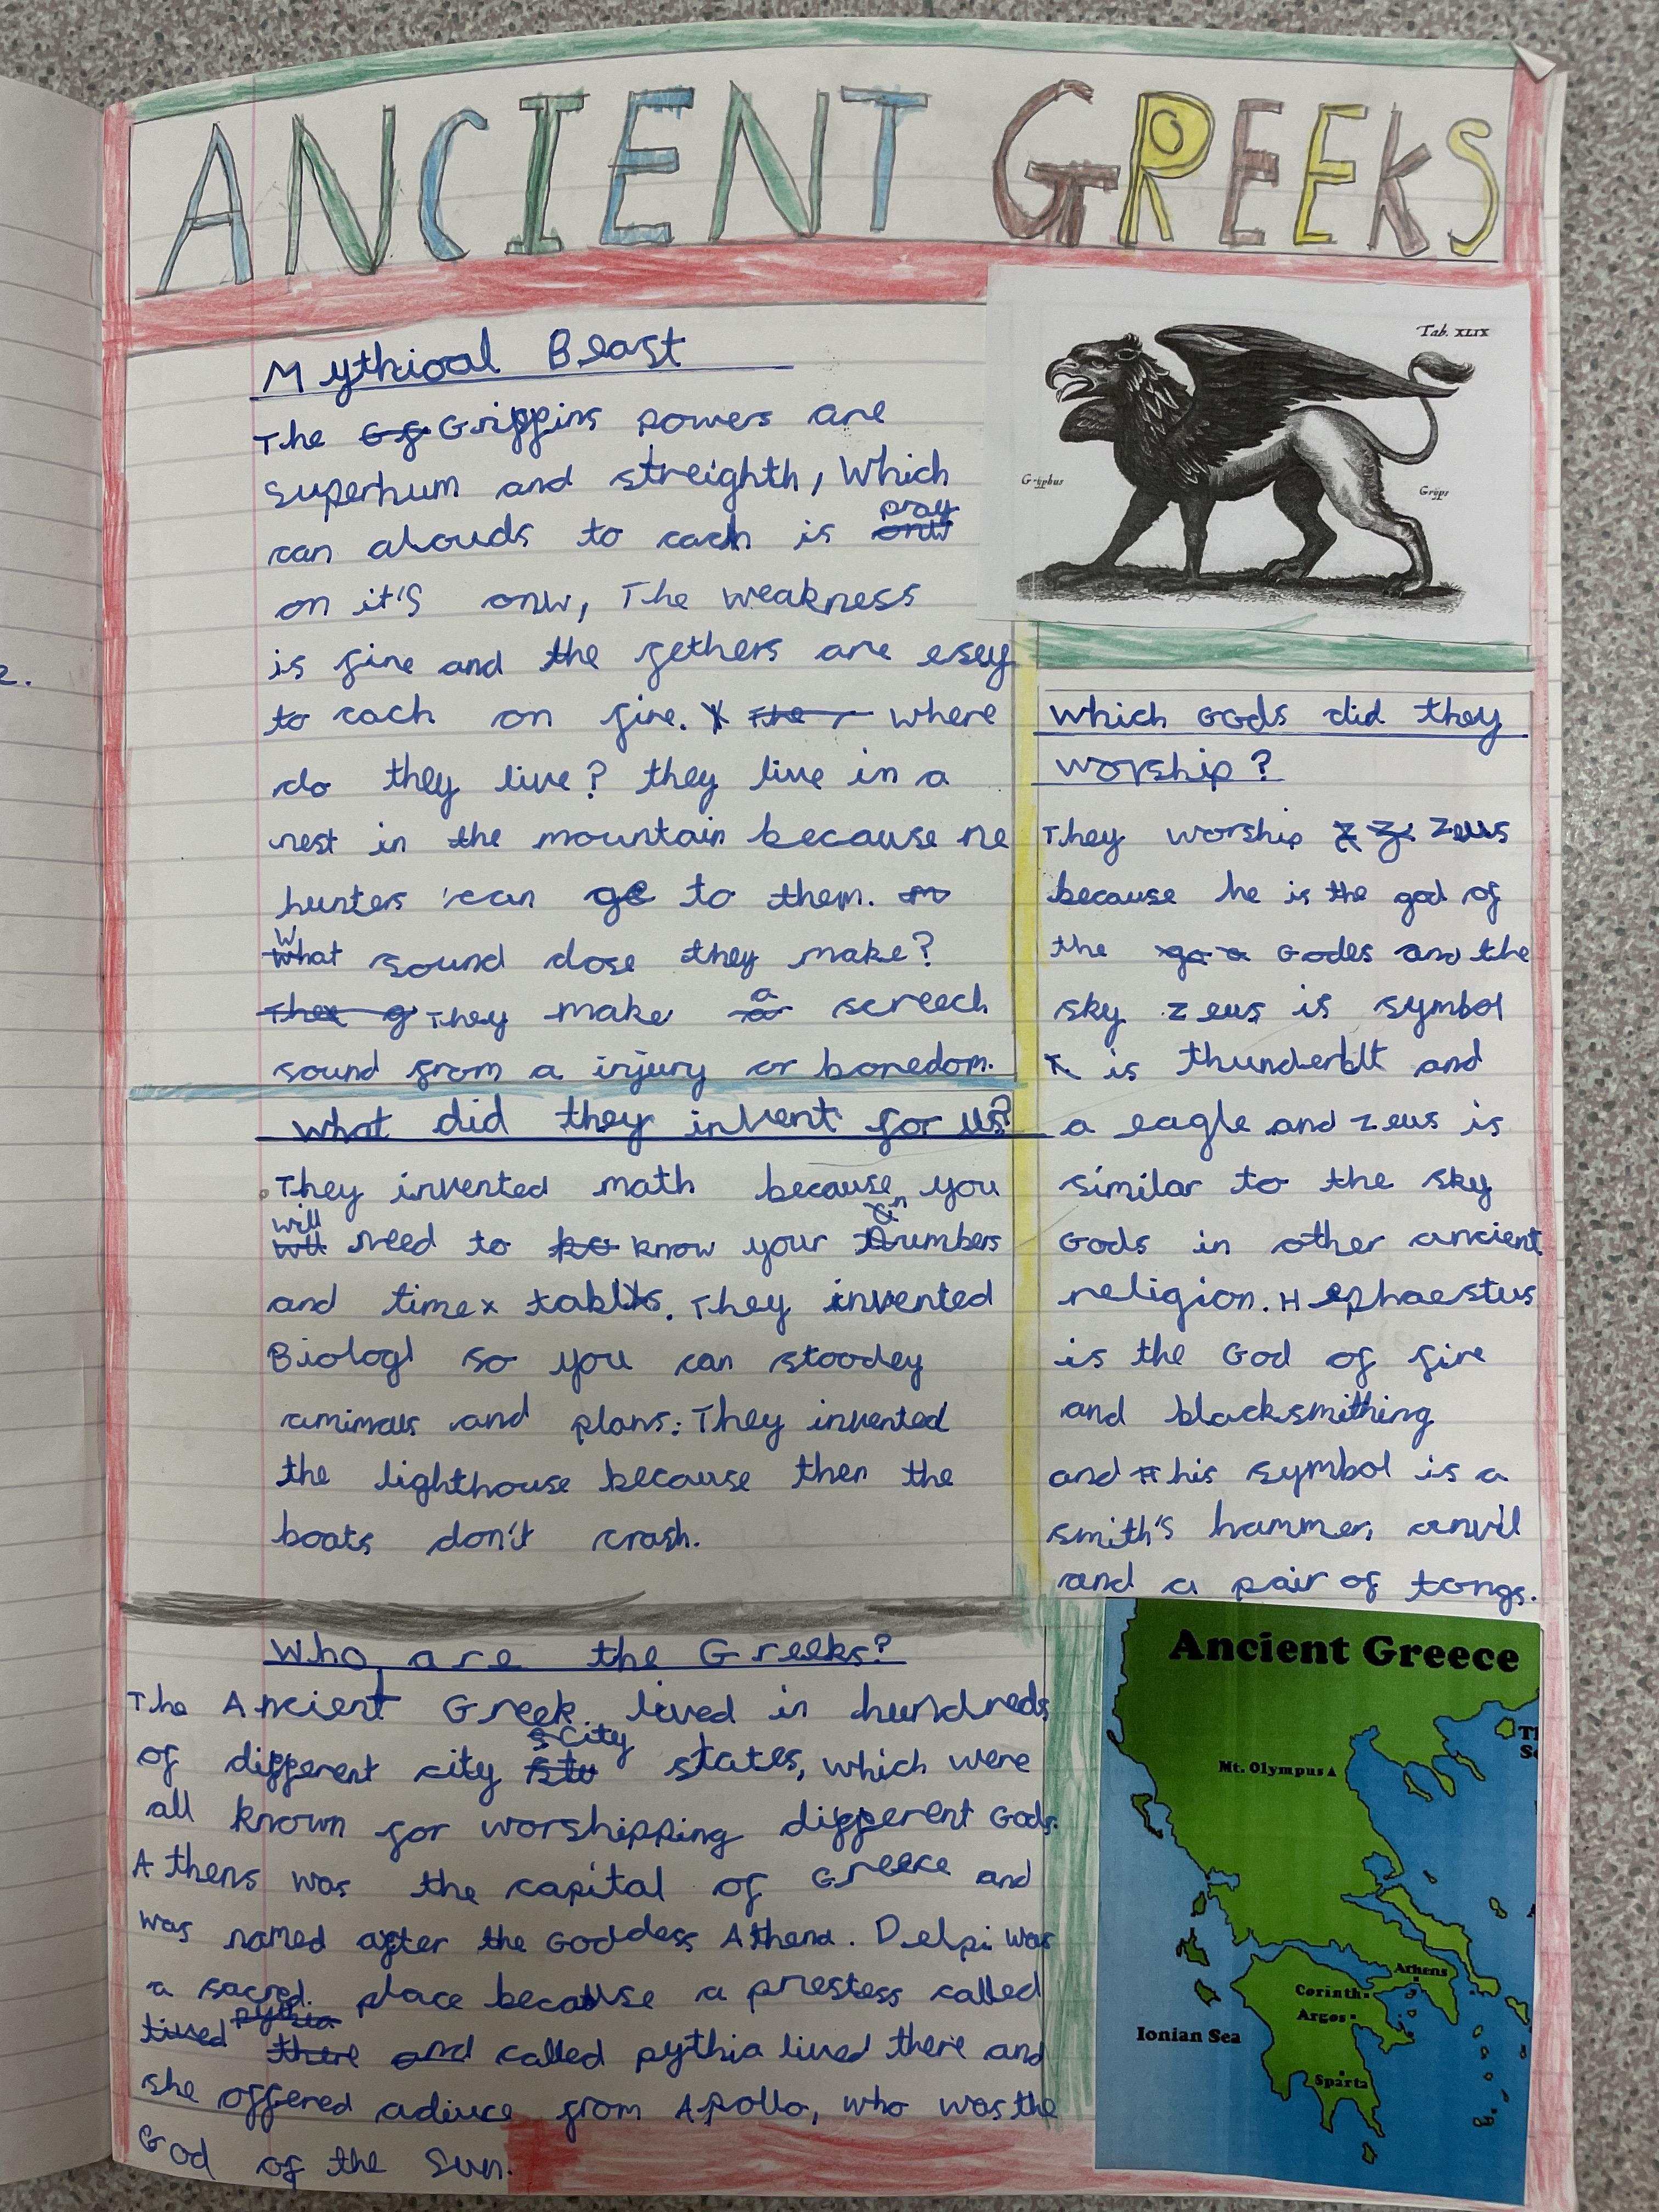 ANCIENT GREEKS
Mythical Beast
The Griffins powers are
superhum and streighth, Which
can alouds to cach is pray
on it's onw, The weakness
is fire and the fethers are esey
to cach on fire. where
do they live? they live in a
nest in the mountain because ne
hunters can ge to them.
What sound dose they make?
They make a screech
sound from a injury or boredom.
Tab. XLIX
Gryphus
Gryps
What did they invent for us?
They invented math because you
will need to know your numbers
and time x tables. They invented
Biologl so you can stoodey
amimals and plans. They invented
the lighthouse because then the
boats don't crash.
Which Gods did they
worship?
They worship Zeus
because he is the god of
the Godes and the
sky Zeus is symbol
is thunderblt and
a eagle and Zeus is
similar to the sky
Gods in other ancient
religion. Hephaestus
is the God of fire
and blacksmithing
and his symbol is a
smith's hammer, anvil
and a pair of tongs.
Who are the Greeks?
The Ancient Greek lived in hundreds
of different city city states, which were
all known for worshipping different Gods.
Athens was the capital of Greece and
was named after the Goddess Athena. Delpi was
a sacred place because a priestess called
called pythia lived there and
she offered adivce from Apollo, who was the
God of the Sun.
Ancient Greece
Mt. Olympus
Athens
Corinth
Argos
Ionian Sea
Sparta
2.